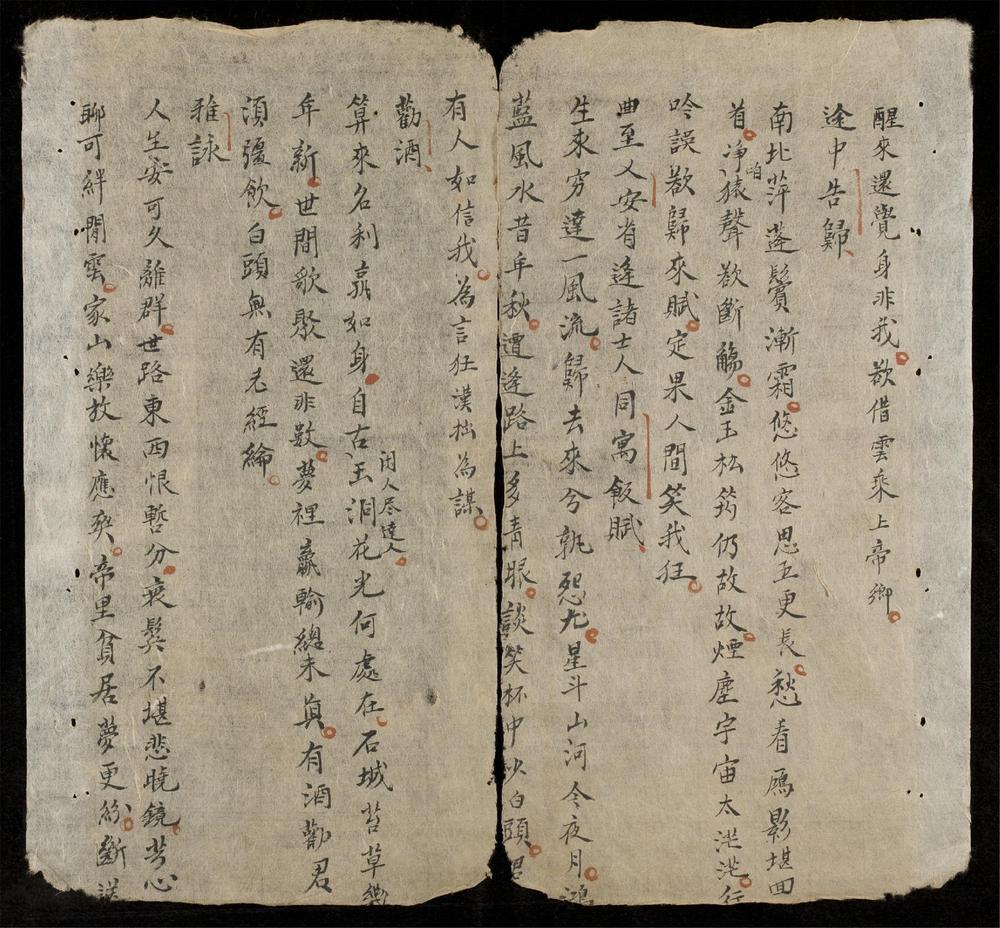 醒來還覺身非我欲借雲乘上帝鄉
途中告歸
南北萍蓬鬢漸霜悠悠客思五更長愁看鴈影堪回
首淨猿聲欲斷觴金玉松筠仍故故煙塵宇宙太茫茫行
咱
吟誤欲歸來賦定果人間笑我狂
曲至乂安省逢諸士人同寓飯賦
生來穷達一風流歸去來兮孰怨尤星斗山河今夜月鴻
藍風水昔年秋遭逢路上多青眼談笑杯中少白頭君
有人如信我為言狂漢拙為謀
勸酒
算來名利孰如身自古玉洞花光何處在石城苔草幾
閑人尽達人
年新世間歌聚還非數夢裡贏輸總未真有酒勸君
須彊飲白頭無有老經綸
雅詠
人生安可久離群世路東西恨暫分衰鬂不堪悲曉鏡苦心
聊可絆閒雲家山樂放懷應爽帝里貧居夢更紛斷送